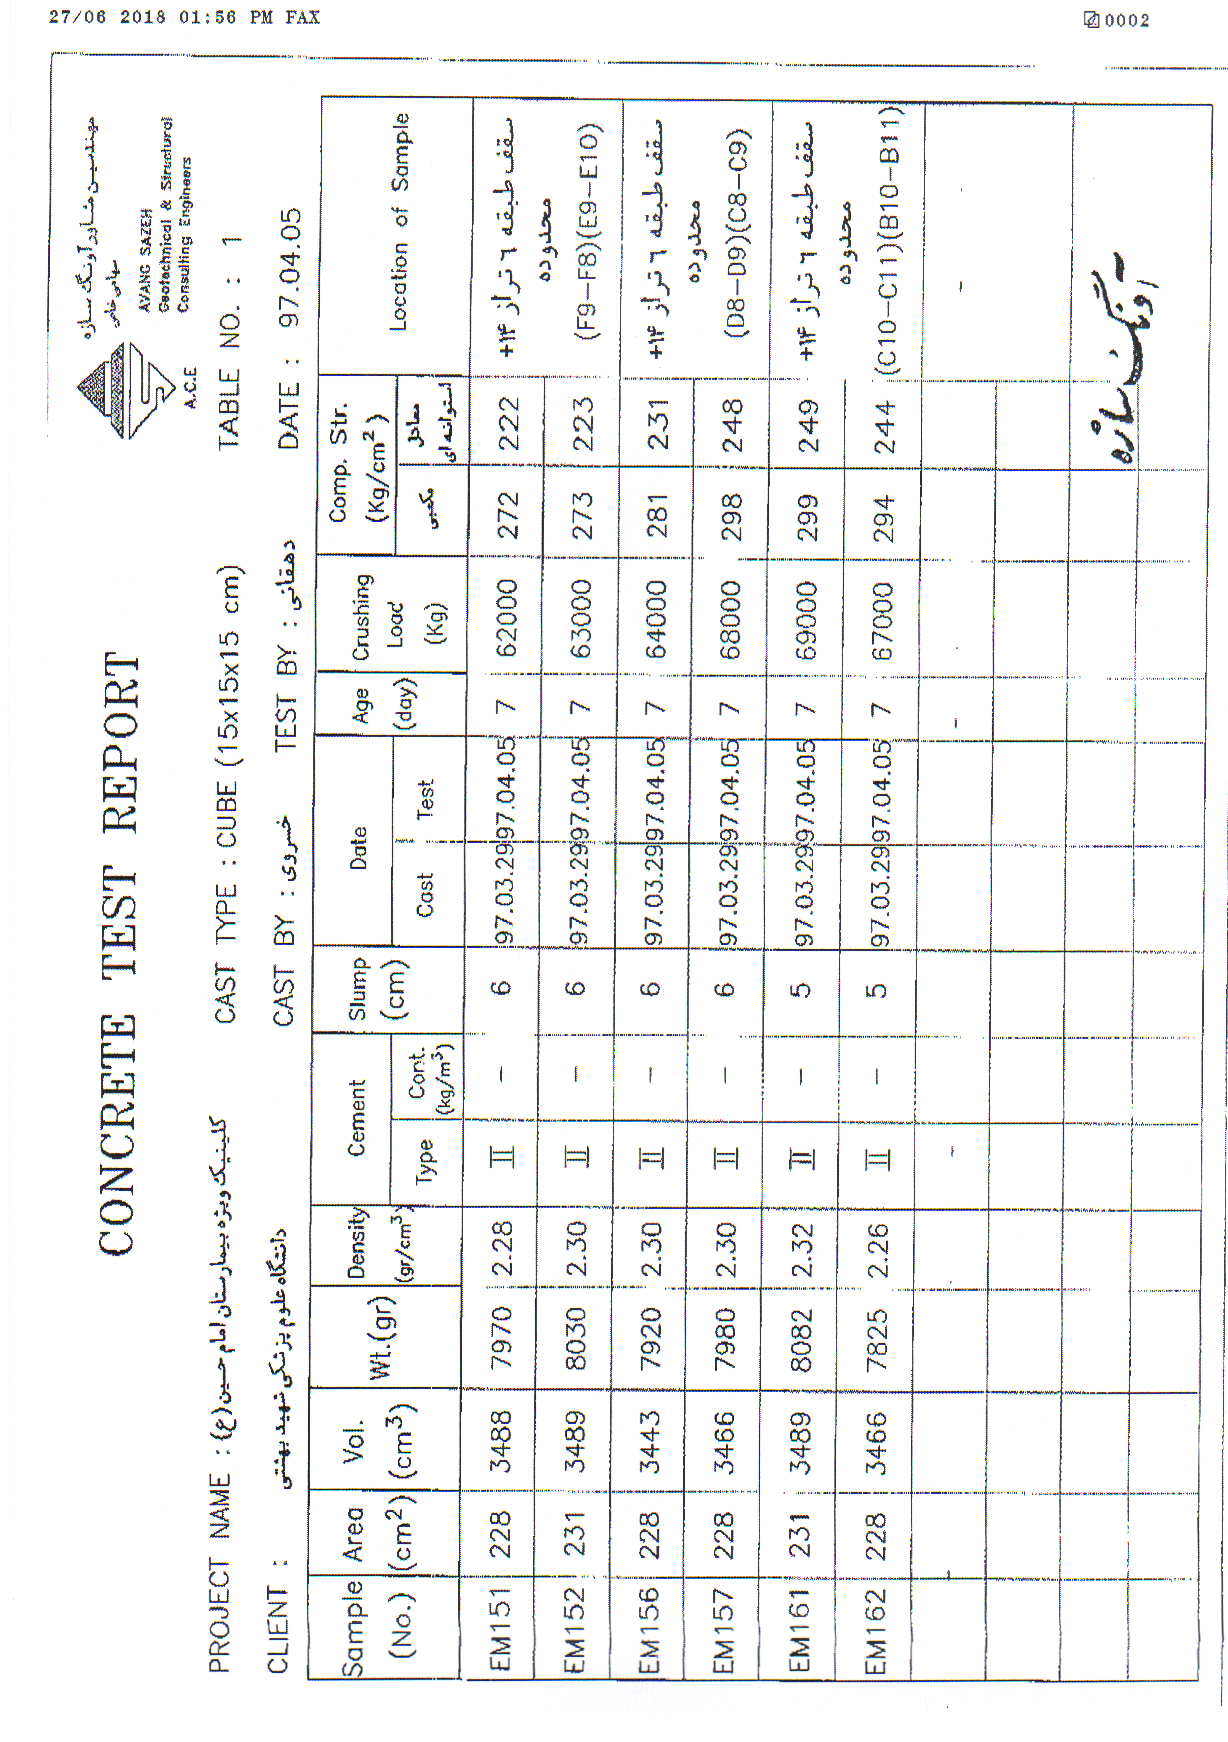 27/06 2018 01:56 PM FAX
0002
مهندسین مشاور آونگ سازه
سهامی خاص
AVANG SAZEH
Geotechnical & Structural
Consulting Engineers
A.C.E
CONCRETE TEST REPORT
PROJECT NAME : کلینیک ویژه بیمارستان امام حسین (ع) CAST TYPE : CUBE (15x15x15 cm) TABLE NO. : 1
CLIENT : دانشگاه علوم پزشکی شهید بهشتی CAST BY : خسروی TEST BY : دهقانی DATE : 97.04.05
Sample (No.) Area (cm2) Vol. (cm3) Wt.(gr) Density (gr/cm3) Cement Type Cont. (kg/m3) Slump (cm) Date Cast Test Age (day) Crushing Load (Kg) Comp. Str. (Kg/cm2) مکعبی معادل استوانه ای Location of Sample
EM151 228 3488 7970 2.28 II – 6 97.03.29 97.04.05 7 62000 272 222 سقف طبقه ٦ تراز ۱۴+
EM152 231 3489 8030 2.30 II – 6 97.03.29 97.04.05 7 63000 273 223 محدوده (F9–F8)(E9–E10)
EM156 228 3443 7920 2.30 II – 6 97.03.29 97.04.05 7 64000 281 231 سقف طبقه ٦ تراز ۱۴+
EM157 228 3466 7980 2.30 II – 6 97.03.29 97.04.05 7 68000 298 248 محدوده (D8–D9)(C8–C9)
EM161 231 3489 8082 2.32 II – 5 97.03.29 97.04.05 7 69000 299 249 سقف طبقه ٦ تراز ۱۴+
EM162 228 3466 7825 2.26 II – 5 97.03.29 97.04.05 7 67000 294 244 محدوده (C10–C11)(B10–B11)
آونگ سازه